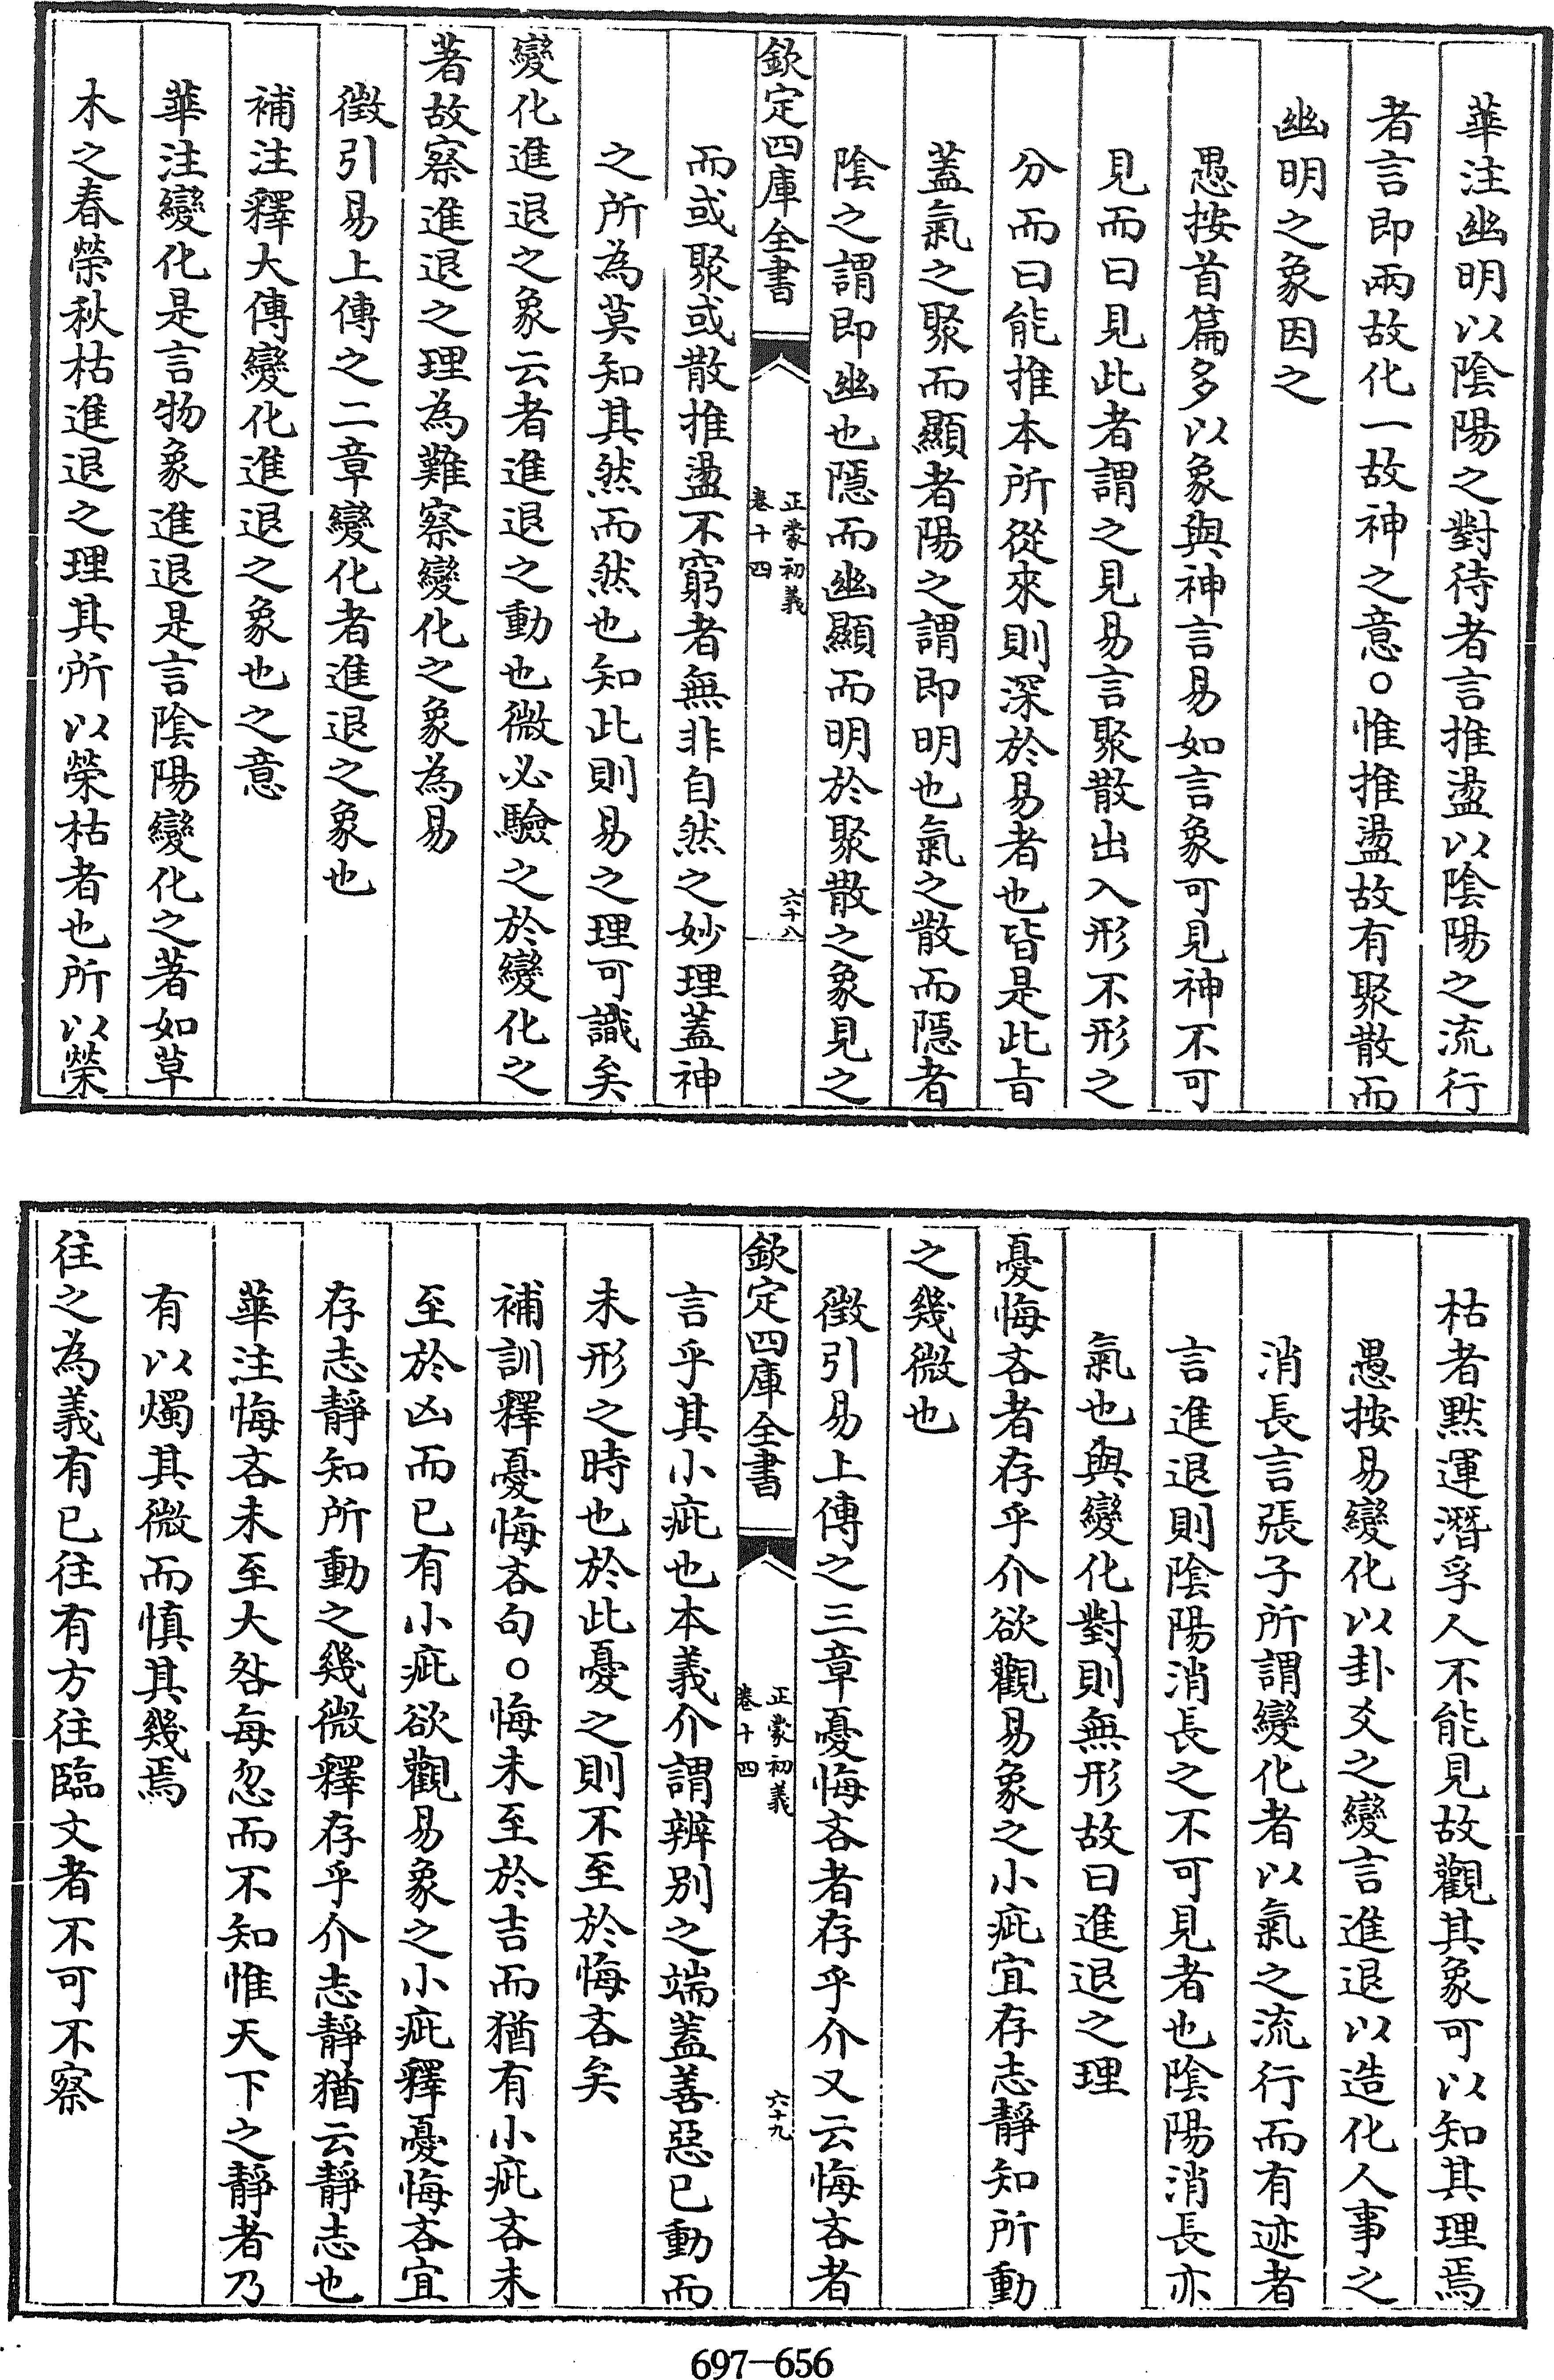 華注幽明以陰陽之對待者言推盪以陰陽之流行
者言即兩故化一故神之意○惟推盪故有聚散而
幽明之象因之
愚按首篇多以象與神言易如言象可見神不可
見而曰見此者謂之見易言聚散出入形不形之
分而曰能推本所從來則深於易者也皆是此旨
蓋氣之聚而顯者陽之謂即明也氣之散而隱者
陰之謂即幽也隱而幽顯而明於聚散之象見之
欽定四庫全書
正蒙初義
卷十四
六十八
而或聚或散推盪不窮者無非自然之妙理蓋神
之所為莫知其然而然也知此則易之理可識矣
變化進退之象云者進退之動也微必驗之於變化之
著故察進退之理為難察變化之象為易
徵引易上傳之二章變化者進退之象也
補注釋大傳變化進退之象也之意
華注變化是言物象進退是言陰陽變化之著如草
木之春榮秋枯進退之理其所以榮枯者也所以榮
枯者默運潛孚人不能見故觀其象可以知其理焉
愚按易變化以卦爻之變言進退以造化人事之
消長言張子所謂變化者以氣之流行而有迹者
言進退則陰陽消長之不可見者也陰陽消長亦
氣也與變化對則無形故曰進退之理
憂悔吝者存乎介欲觀易象之小疵宜存志靜知所動
之幾微也
徵引易上傳之三章憂悔吝者存乎介又云悔吝者
欽定四庫全書
正蒙初義
卷十四
六十九
言乎其小疵也本義介謂辨別之端蓋善惡已動而
未形之時也於此憂之則不至於悔吝矣
補訓釋憂悔吝句○悔未至於吉而猶有小疵吝未
至於凶而已有小疵欲觀易象之小疵釋憂悔吝宜
存志靜知所動之幾微釋存乎介志靜猶云靜志也
華注悔吝未至大咎每忽而不知惟天下之靜者乃
有以燭其微而慎其幾焉
往之為義有已往有方往臨文者不可不察
697-656